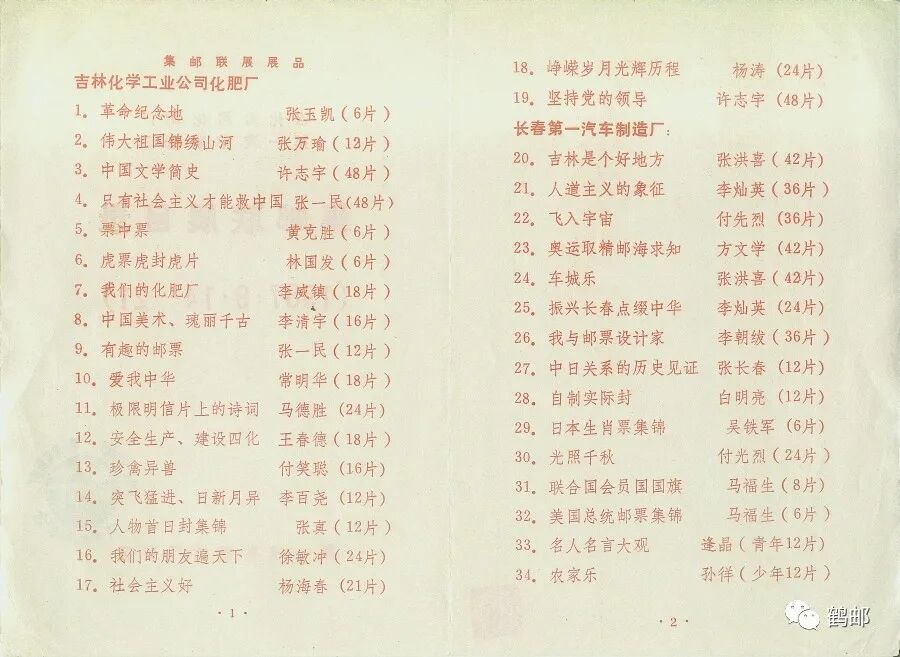 集邮联展展品
吉林化学工业公司化肥厂
1. 革命纪念地 张玉凯(6片)
2. 伟大祖国锦绣山河 张万瑜(12片)
3. 中国文学简史 许志宇(48片)
4. 只有社会主义才能救中国 张一民(48片)
5. 票中票 黄克胜(6片)
6. 虎票虎封虎片 林国发(6片)
7. 我们的化肥厂 李威镇(18片)
8. 中国美术、瑰丽千古 李清宇(16片)
9. 有趣的邮票 张一民(12片)
10. 爱我中华 常明华(18片)
11. 极限明信片上的诗词 马德胜(24片)
12. 安全生产、建设四化 王春德(18片)
13. 珍禽异兽 付笑聪(16片)
14. 突飞猛进、日新月异 李百尧(12片)
15. 人物首日封集锦 张真(12片)
16. 我们的朋友遍天下 徐敏冲(24片)
17. 社会主义好 杨海春(21片)
·1·
18. 峥嵘岁月光辉历程 杨涛(24片)
19. 坚持党的领导 许志宇(48片)
长春第一汽车制造厂:
20. 吉林是个好地方 张洪喜(42片)
21. 人道主义的象征 李灿英(36片)
22. 飞入宇宙 付先烈(36片)
23. 奥运取精邮海求知 方文学(42片)
24. 车城乐 张洪喜(42片)
25. 振兴长春点缀中华 李灿英(24片)
26. 我与邮票设计家 李朝绂(36片)
27. 中日关系的历史见证 张长春(12片)
28. 自制实际封 白明亮(12片)
29. 日本生肖票集锦 吴铁军(6片)
30. 光照千秋 付光烈(24片)
31. 联合国会员国国旗 马福生(8片)
32. 美国总统邮票集锦 马福生(6片)
33. 名人名言大观 逄晶(青年12片)
34. 农家乐 孙徉(少年12片)
·2·
鹤邮